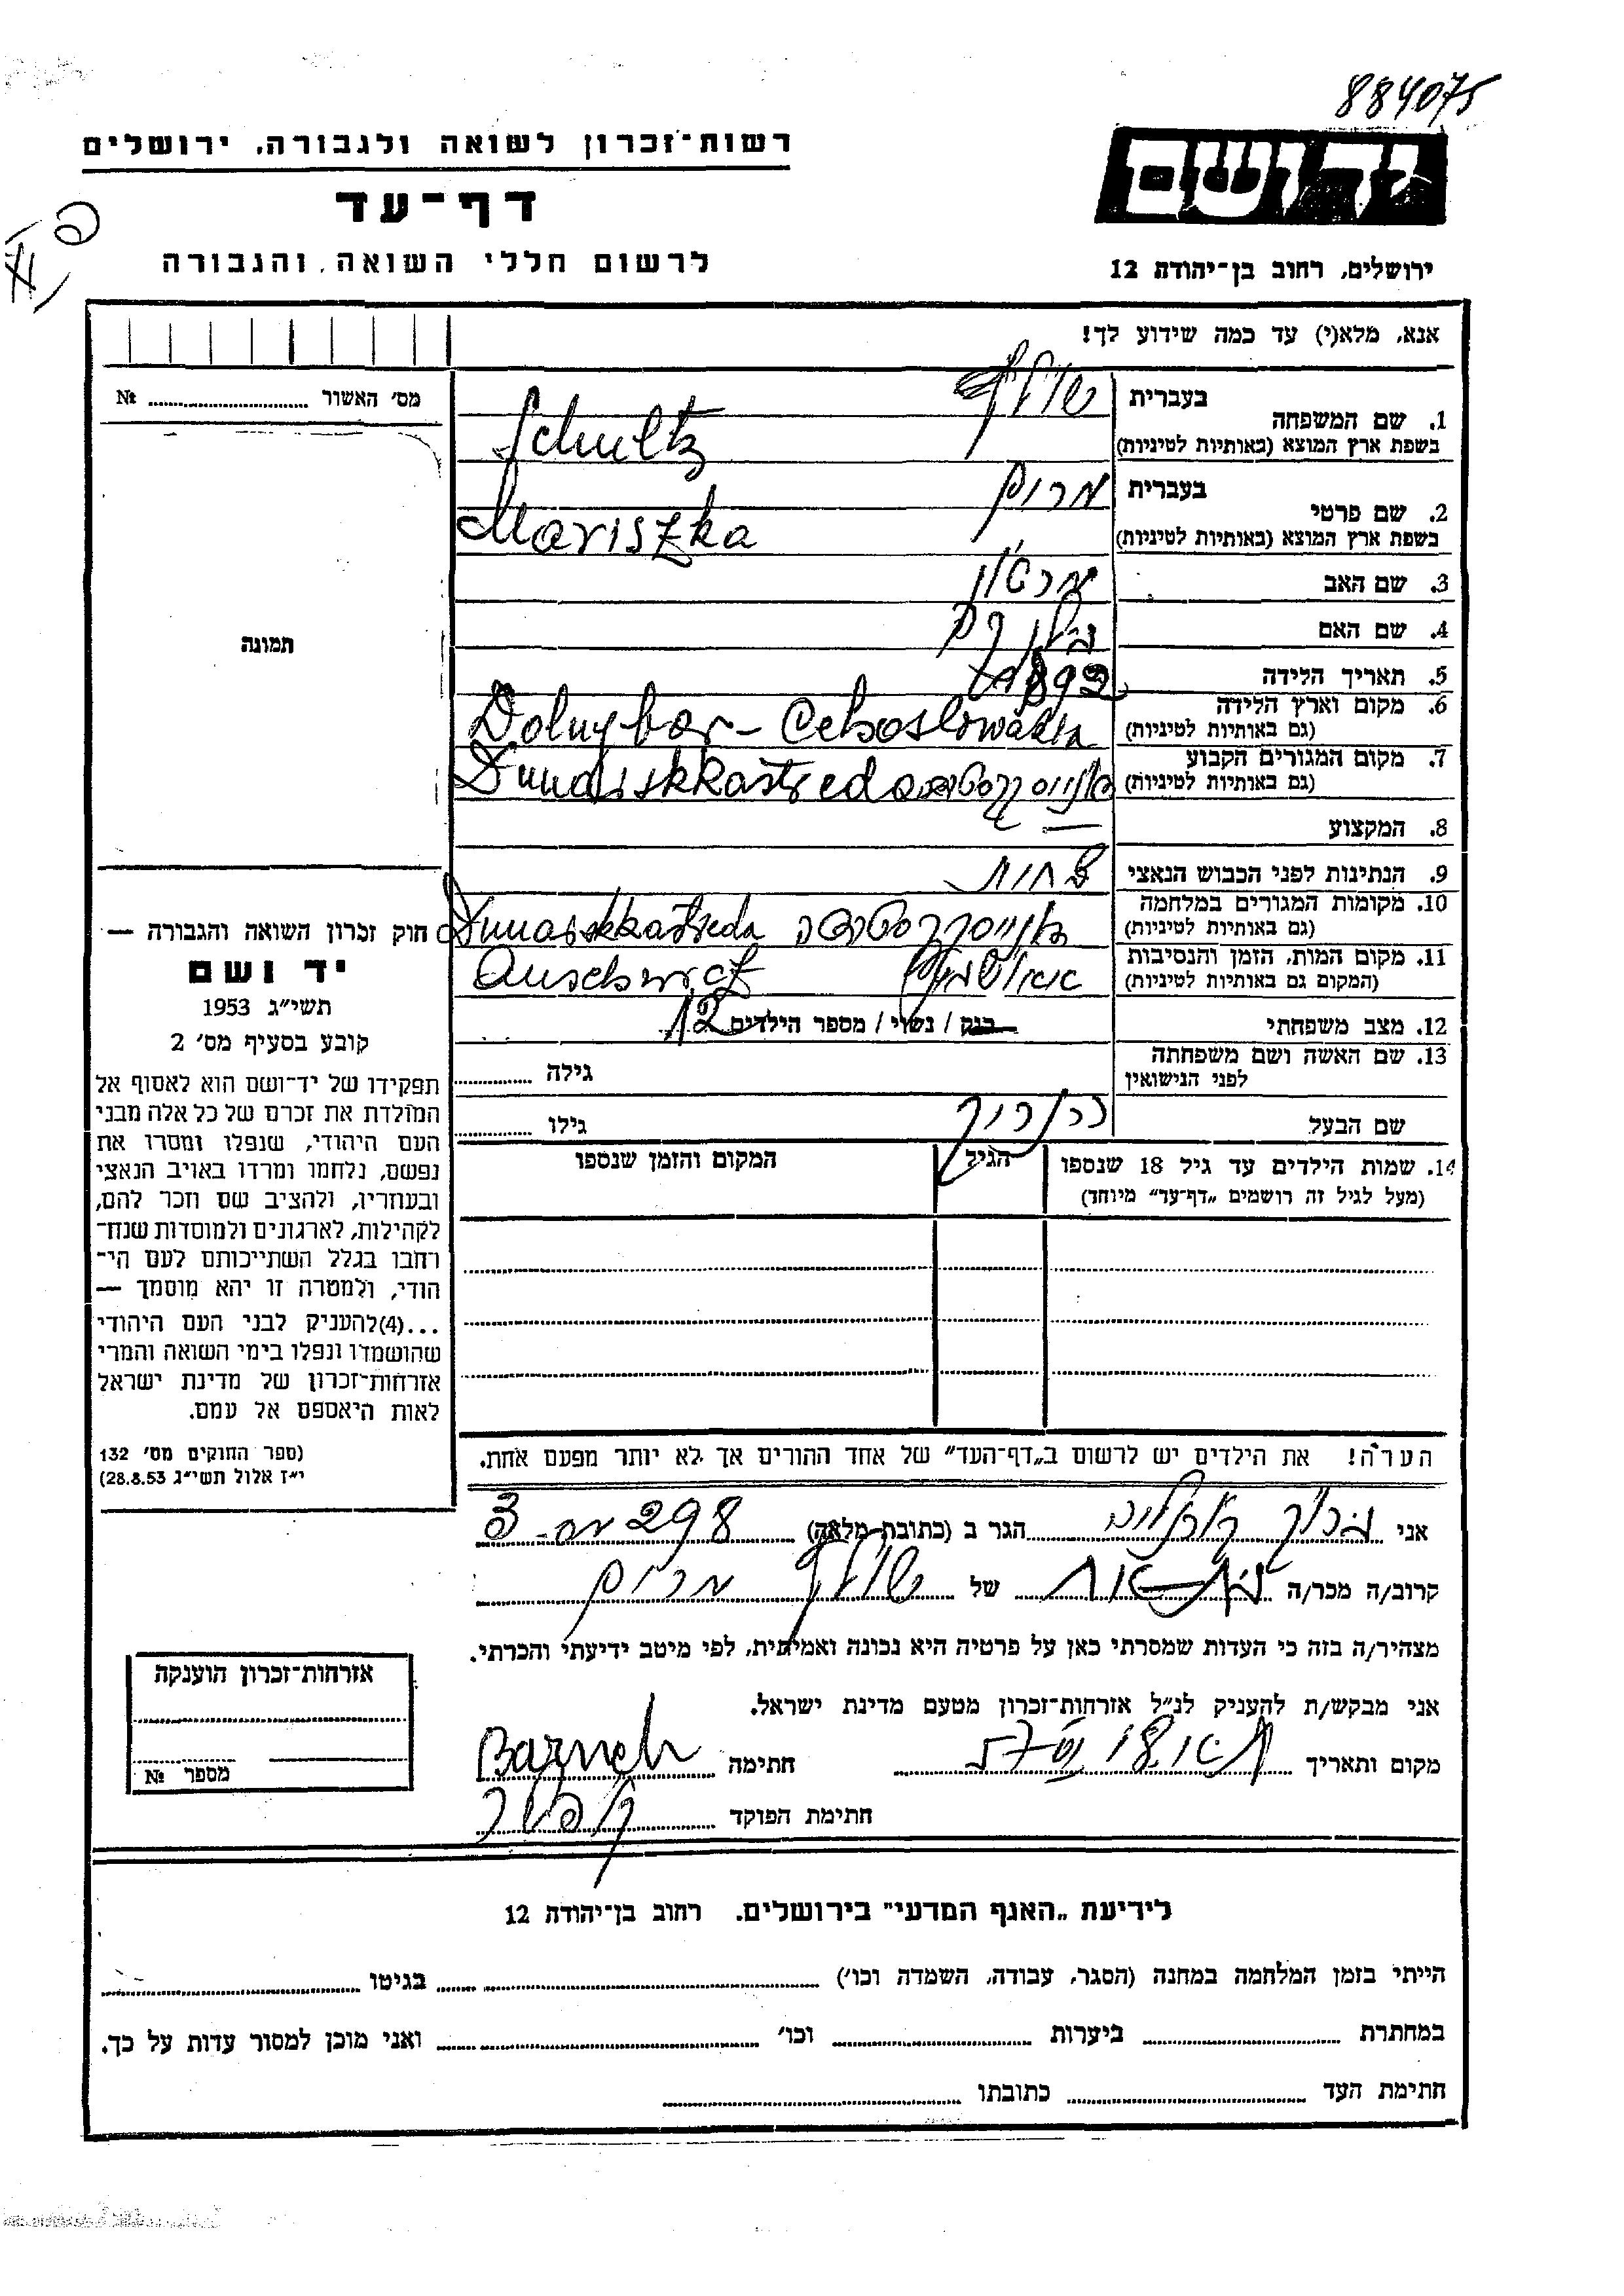 884075
רשות־זכרון לשואה ולגבורה, ירושלים
יד ושם
דף־עד
לרשום חללי השואה והגבורה
ירושלים, רחוב בן־יהודה 12
אנא, מלא(י) עד כמה שידוע לך!
מס׳ האשור № ........
1. שם המשפחה
בעברית שולץ
בשפת ארץ המוצא (באותיות לטיניות) Schultz
2. שם פרטי
בעברית מרים
בשפת ארץ המוצא (באותיות לטיניות) Mariszka
3. שם האב
4. שם האם
תמונה
5. תאריך הלידה 1892
6. מקום וארץ הלידה
(גם באותיות לטיניות) Dolnybar -
7. מקום המגורים הקבוע
(גם באותיות לטיניות)
8. המקצוע —
9. הנתינות לפני הכבוש הנאצי
10. מקומות המגורים במלחמה
(גם באותיות לטיניות)
11. מקום המות, הזמן והנסיבות
(המקום גם באותיות לטיניות)
12. מצב משפחתי רווק / נשוי / מספר הילדים 12
13. שם האשה ושם משפחתה
לפני הנישואין
גילה ........
שם הבעל
גילו ........
14. שמות הילדים עד גיל 18 שנספו
(מעל לגיל זה רושמים „דף־עד” מיוחד)
הגיל
המקום והזמן שנספו
חוק זכרון השואה והגבורה —
יד ושם
תשי״ג 1953
קובע בסעיף מס׳ 2
תפקידו של יד־ושם הוא לאסוף אל
המולדת את זכרם של כל אלה מבני
העם היהודי, שנפלו ומסרו את
נפשם, נלחמו ומרדו באויב הנאצי
ובעוזריו, ולהציב שם וזכר להם,
לקהילות, לארגונים ולמוסדות שנח־
רבו בגלל השתייכותם לעם הי־
הודי, ולמטרה זו יהא מוסמך —
...(4)להעניק לבני העם היהודי
שהושמדו ונפלו בימי השואה והמרי
אזרחות־זכרון של מדינת ישראל
לאות היאספם אל עמם.
(ספר החוקים מס׳ 132
י״ז אלול תשי״ג 28.8.53)
הערה! את הילדים יש לרשום ב„דף־העד” של אחד ההורים אך לא יותר מפעם אחת.
אני ........ הגר ב (כתובת מלאה) 298
קרוב/ה מכר/ה ........ של שולץ מרים
מצהיר/ה בזה כי העדות שמסרתי כאן על פרטיה היא נכונה ואמיתית, לפי מיטב ידיעתי והכרתי.
אני מבקש/ת להעניק לנ״ל אזרחות־זכרון מטעם מדינת ישראל.
מקום ותאריך ........ חתימה
חתימת הפוקד
אזרחות־זכרון הוענקה
מספר №
לידיעת „האגף המדעי” בירושלים. רחוב בן־יהודה 12
הייתי בזמן המלחמה במחנה (הסגר, עבודה, השמדה וכו׳) ........ בגיטו ........
במחתרת ........ ביערות ........ וכו׳ ........ ואני מוכן למסור עדות על כך.
חתימת העד ........ כתובתו ........